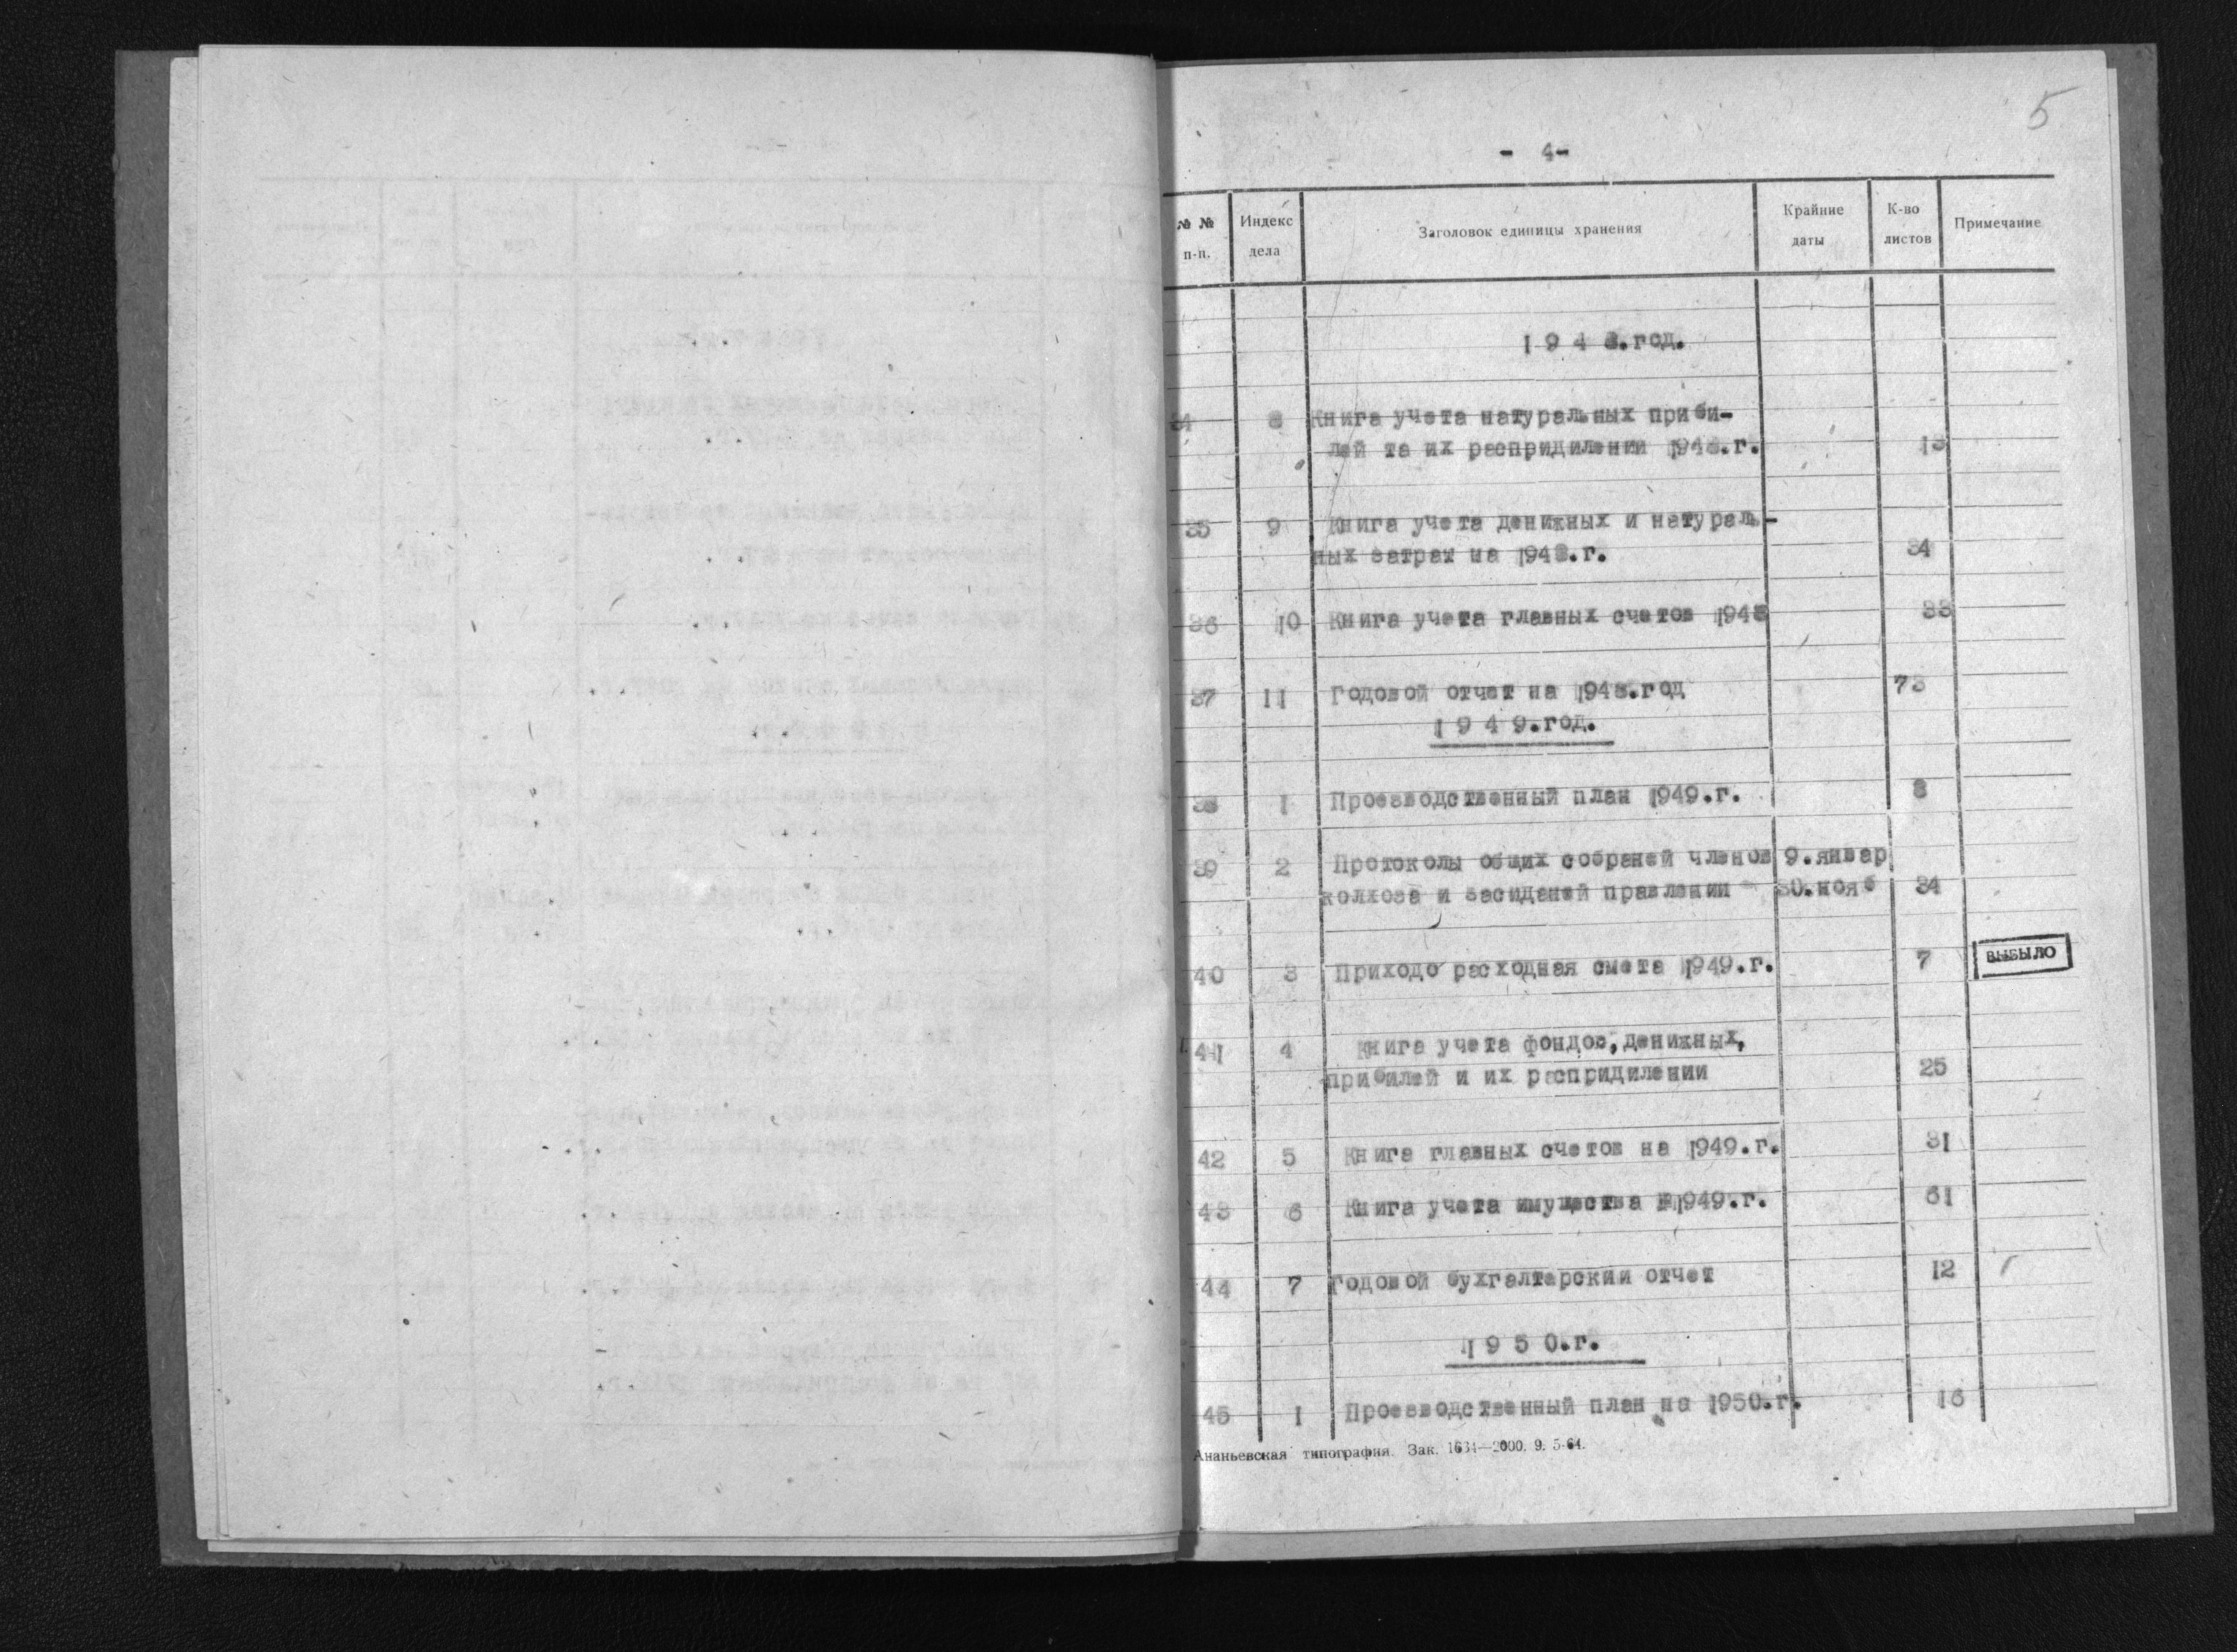 5
- 4-
№ № п-п. Индекс дела Заголовок единицы хранения Крайние даты К-во листов Примечание
1 9 4 8.год.
34 8 Книга учета натуральных приби-
лей та их распридилении 1948.г. 13
35 9 Книга учета денижных и натураль-
ных затрат на 1948.г. 34
36 10 Книга учета главных счетов 1948 33
37 11 Годовой отчет на 1948.год 73
1 9 4 9.год.
38 1 Проезводственный план 1949.г. 8
39 2 Протоколы общих собраней членов 9.январ
колхоза и засиданей правлении 30.нояб 34
40 3 Приходо расходная смета 1949.г. 7 ВЫБЫЛО
41 4 Книга учета фондос,денижных,
прибилей и их распридилении 25
42 5 Книга главных счетов на 1949.г. 31
43 6 Книга учета имущества 1949.г. 61
44 7 Годовой бухгалтерский отчет 12
1 9 5 0.г.
45 1 Проезводственный план на 1950.г. 16
Ананьевская типография. Зак. 1634—2000. 9. 5-64.